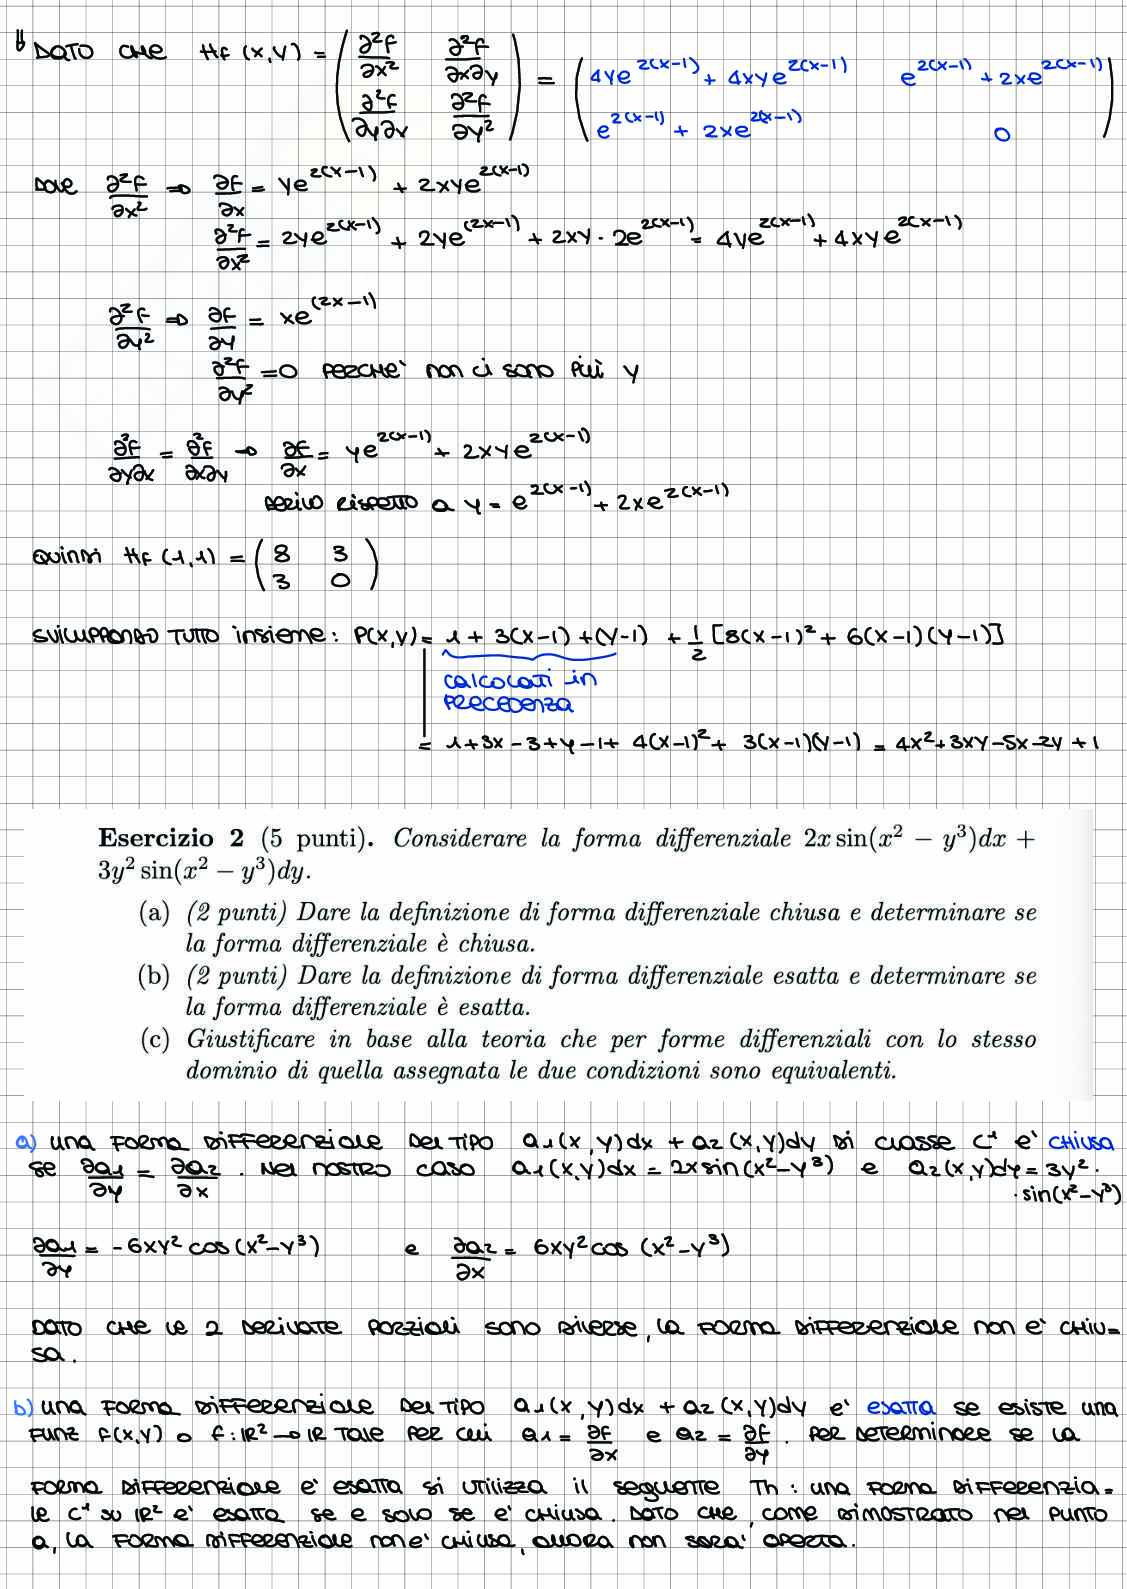 ⇓ DATO CHE Hf (x,y) = ( ∂²f/∂x² ∂²f/∂x∂y ; ∂²f/∂y∂x ∂²f/∂y² ) = ( 4ye^{2(x-1)} + 4xye^{2(x-1)} e^{2(x-1)} + 2xe^{2(x-1)} ; e^{2(x-1)} + 2xe^{2(x-1)} 0 )
DOVE ∂²f/∂x² ⇒ ∂f/∂x = ye^{2(x-1)} + 2xye^{2(x-1)}
∂²f/∂x² = 2ye^{2(x-1)} + 2ye^{(2x-1)} + 2xy · 2e^{2(x-1)} = 4ye^{2(x-1)} + 4xye^{2(x-1)}
∂²f/∂y² ⇒ ∂f/∂y = xe^{(2x-1)}
∂²f/∂y² = 0 PERCHE' NON CI SONO PIÙ Y
∂²f/∂y∂x = ∂²f/∂x∂y → ∂f/∂x = ye^{2(x-1)} + 2xye^{2(x-1)}
DERIVO RISPETTO A Y = e^{2(x-1)} + 2xe^{2(x-1)}
QUINDI Hf (1,1) = ( 8 3 ; 3 0 )
SVILUPPANDO TUTTO INSIEME: P(x,y) = 1 + 3(x-1) + (y-1) + 1/2 [8(x-1)² + 6(x-1)(y-1)]
CALCOLATI IN
PRECEDENZA
= 1+3x-3+y-1+ 4(x-1)² + 3(x-1)(y-1) = 4x²+3xy-5x-2y+1
Esercizio 2 (5 punti). Considerare la forma differenziale 2x sin(x² − y³)dx +
3y² sin(x² − y³)dy.
(a) (2 punti) Dare la definizione di forma differenziale chiusa e determinare se
la forma differenziale è chiusa.
(b) (2 punti) Dare la definizione di forma differenziale esatta e determinare se
la forma differenziale è esatta.
(c) Giustificare in base alla teoria che per forme differenziali con lo stesso
dominio di quella assegnata le due condizioni sono equivalenti.
a) UNA FORMA DIFFERENZIALE DEL TIPO a₁(x,y)dx + a₂(x,y)dy DI CLASSE C¹ E' CHIUSA
SE ∂a₁/∂y = ∂a₂/∂x. NEL NOSTRO CASO a₁(x,y)dx = 2xsin(x²-y³) e a₂(x,y)dy = 3y² ·
· sin(x²-y³)
∂a₁/∂y = -6xy² cos(x²-y³) e ∂a₂/∂x = 6xy² cos (x²-y³)
DATO CHE LE 2 DERIVATE PARZIALI SONO DIVERSE, LA FORMA DIFFERENZIALE NON E' CHIU=
SA.
b) UNA FORMA DIFFERENZIALE DEL TIPO a₁(x,y)dx + a₂(x,y)dy E' ESATTA SE ESISTE UNA
FUNZ f(x,y) o f: IR² → IR TALE PER CUI a₁ = ∂f/∂x e a₂ = ∂f/∂y. PER DETERMINARE SE LA
FORMA DIFFERENZIALE E' ESATTA SI UTILIZZA IL SEGUENTE Th: UNA FORMA DIFFERENZIA=
LE C¹ SU IR² E' ESATTA SE E SOLO SE E' CHIUSA. DATO CHE, COME DIMOSTRATO NEL PUNTO
a, LA FORMA DIFFERENZIALE NON E' CHIUSA, ALLORA NON SARA' APERTA.